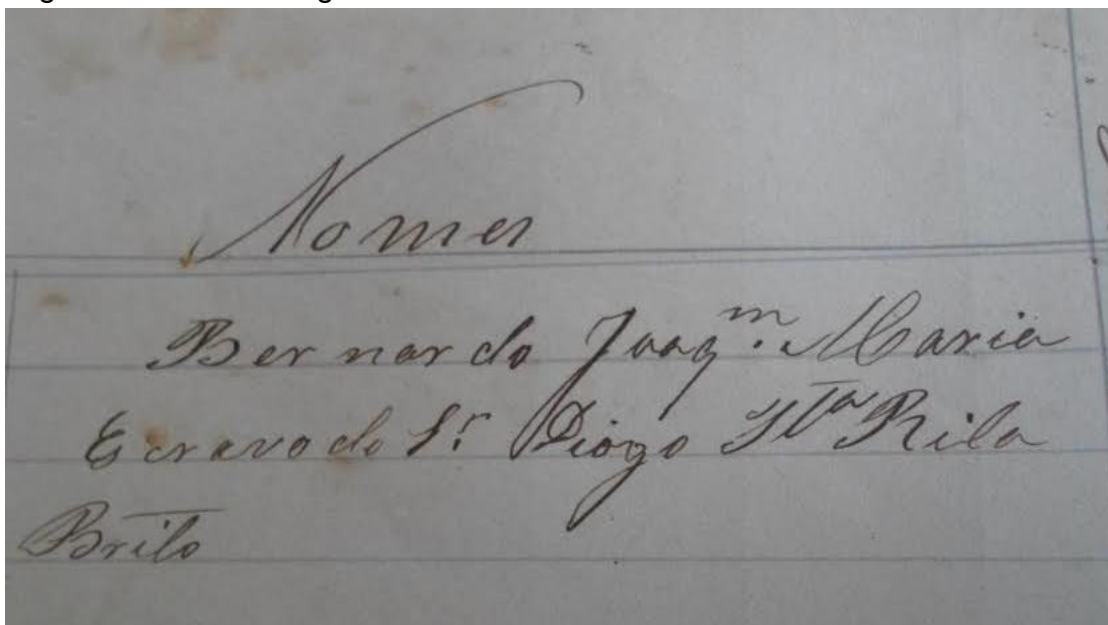 Nomes
Bernardo Joaqm. Maria
Escravo do Sr. Diogo Sta Rita
Brito